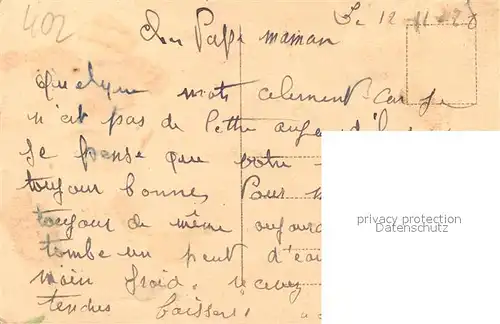 402
Le 12-11-28
Cher Papa maman
quelque mots celement car je
n'ait pas de lettre aujourd'
Je pense que votre
toujour bonnes, Pour
toujour de même aujourd
tombe un peut d'eau
moin froid. recevez
tendres baissers
privacy protection
Datenschutz